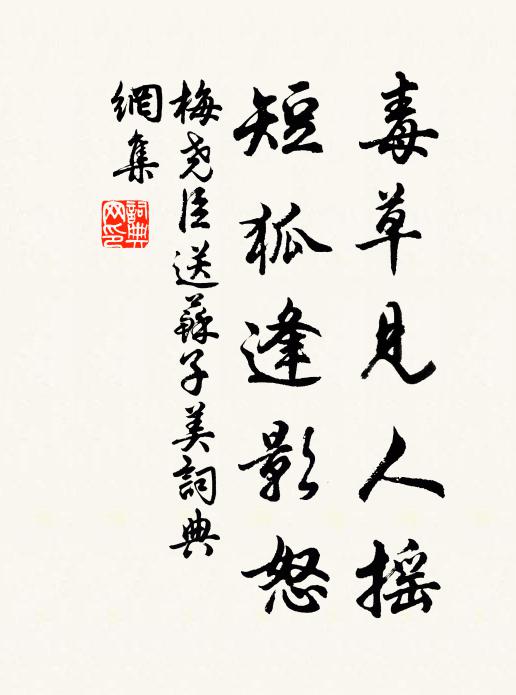 毒草見人摇
短狐逢影怒
梅尧臣送蘇子美詞典
網集
詞典网印